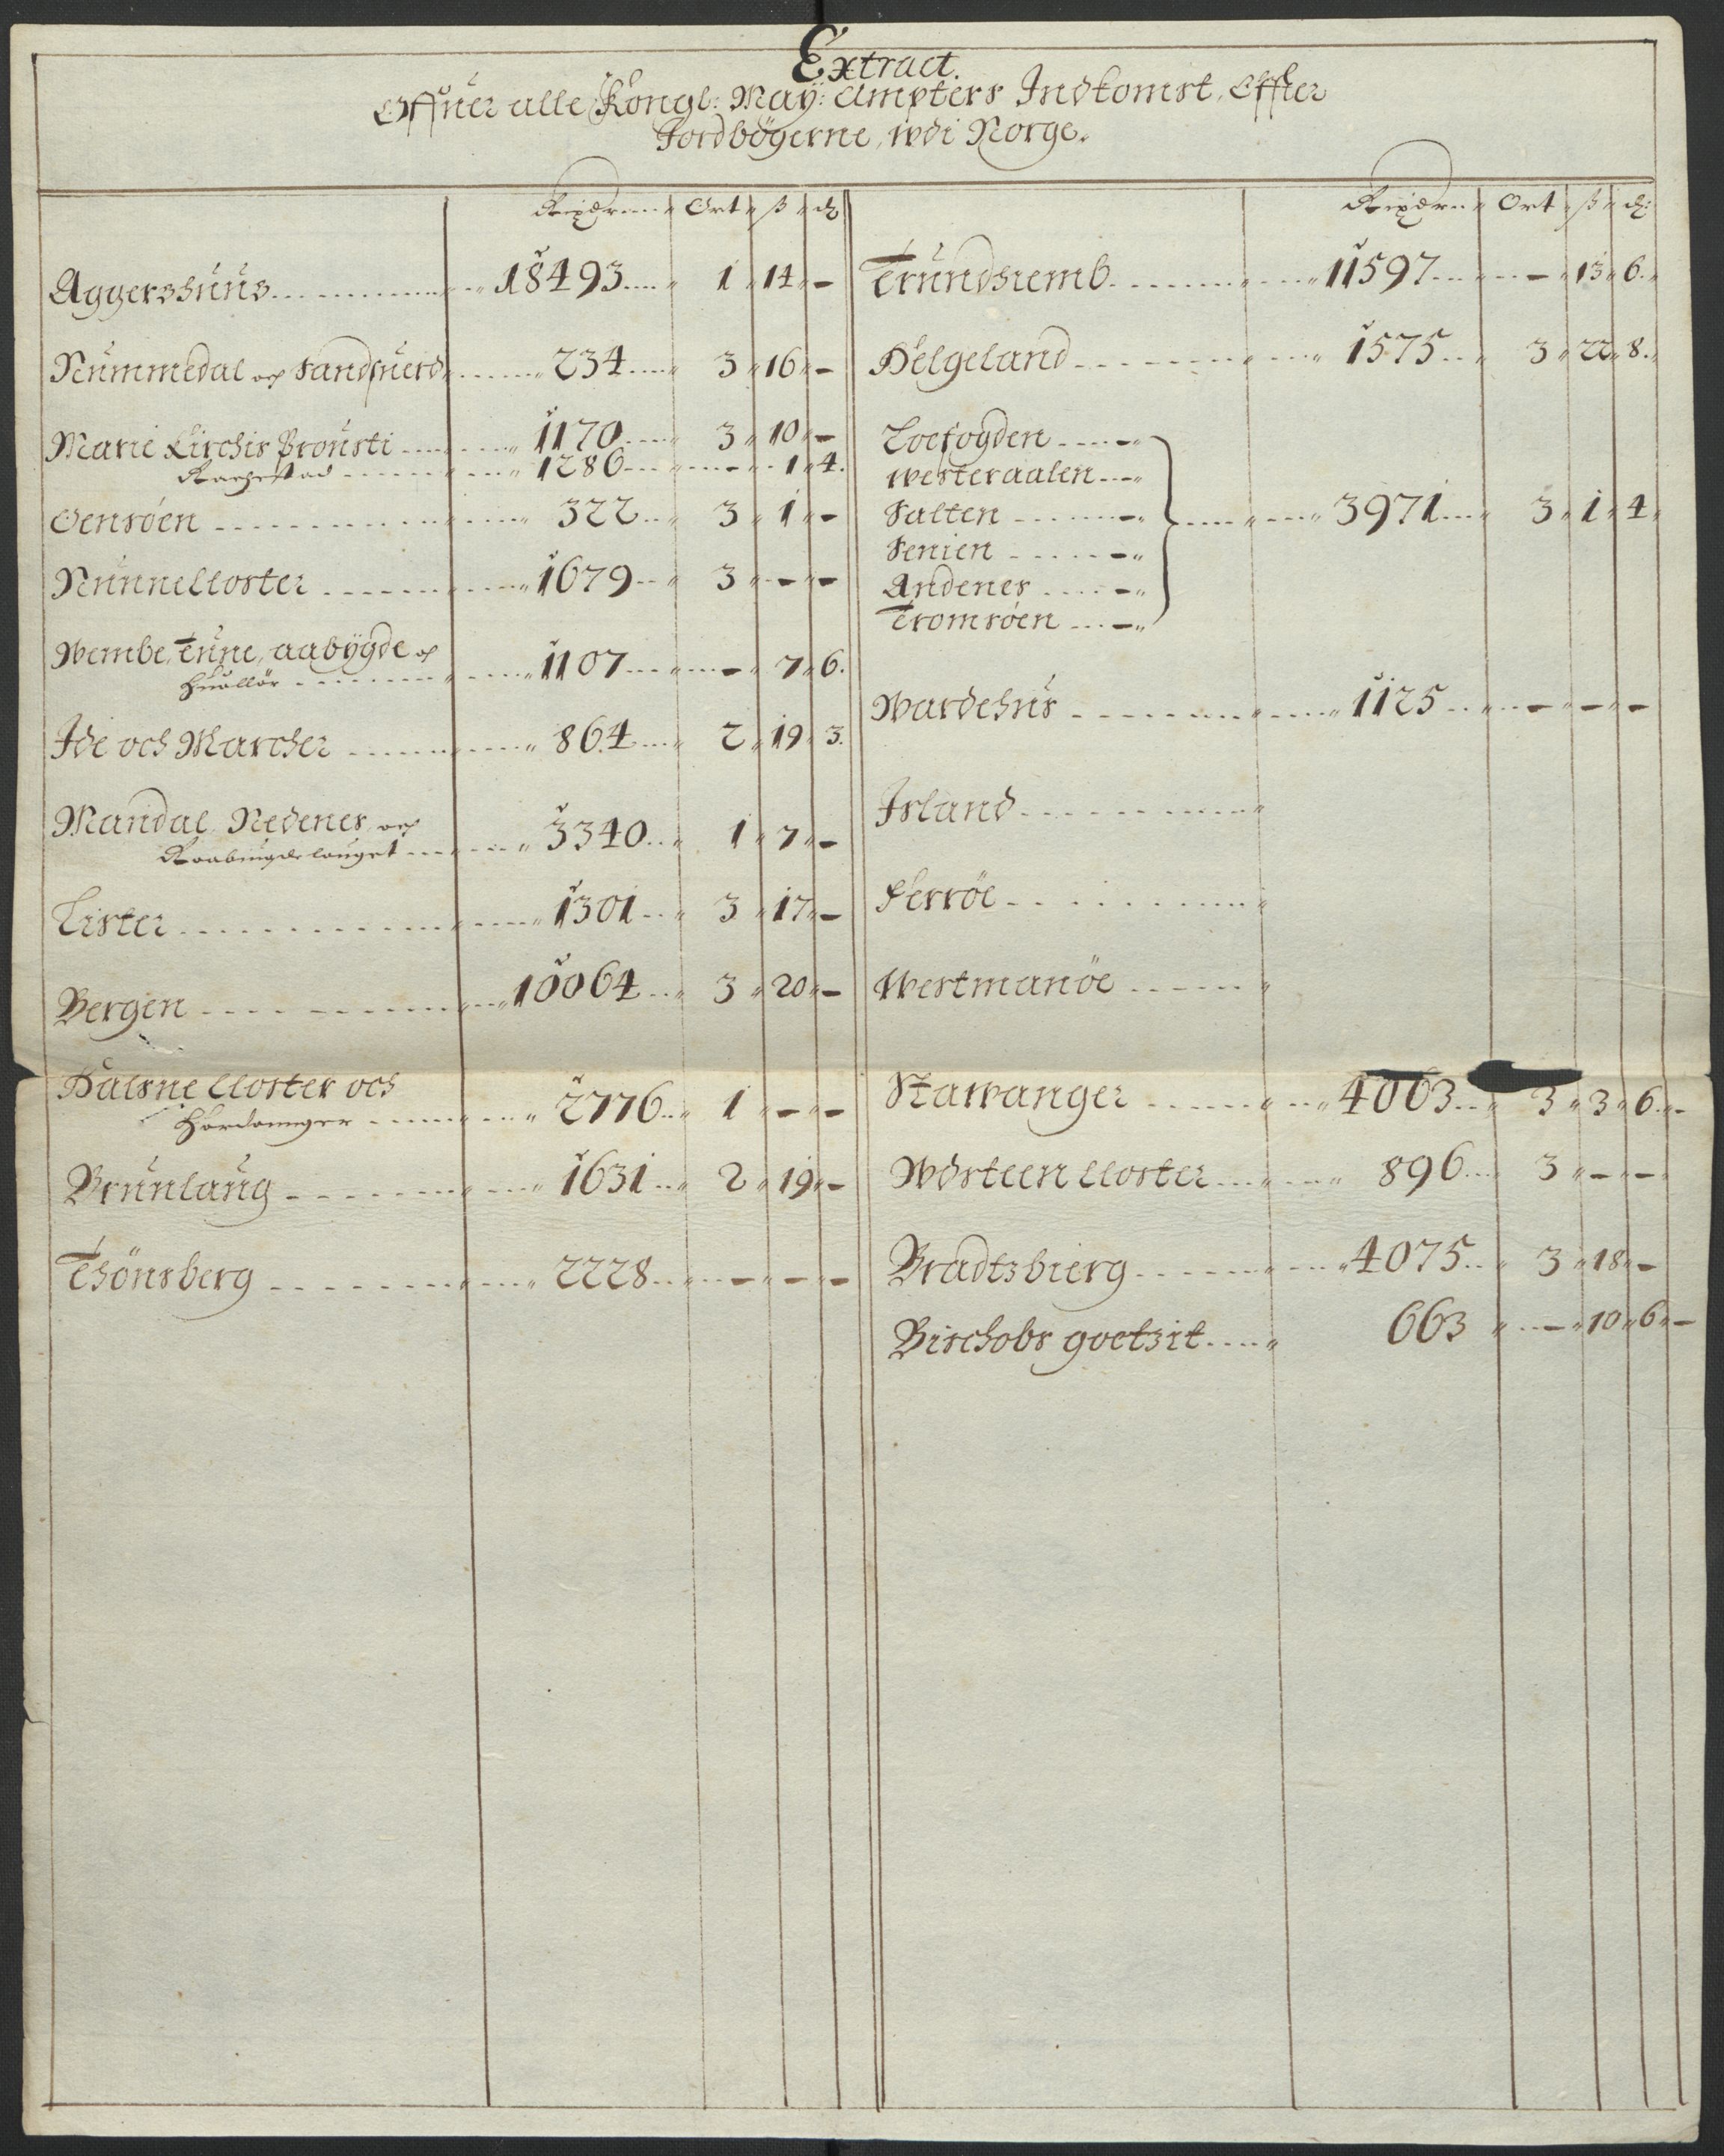 Extract.
Offuer alle Kongl: May: Ampters Indkomst, Effter
Jordbögerne, wdi Norge.
Rixdr Ort ß d
Aggershuus 18493 1 14 -
Nummedal och Sandsuerd 234 3 16 -
Marie Kirchis Prousti 1170 3 10 -
Rachestad 1286 - 1 4.
Oensöen 322 3 1 -
Nunnecloster 1679 3 - -
Wembe, Tune, aabygde och
Huallör 1107 - 7 6.
Ide och Marcher 864 2 19 3.
Mandal, Nedenes, och
Raabugdelauget 3340 1 7 -
Lister 1301 3 17 -
Bergen 10064 3 20 -
Halsne Closter och
Hardanger 2776 1 - -
Brunlaug 1631 2 19 -
Thönsberg 2228 - - -
Rixdr Ort ß d:
Trundhiemb 11597 - 13 6.
Helgeland 1575 3 22 8.
Loefogden
Westeraalen
Salten 3971 3 1 4
Senien
Andenes
Tromsöen
Wardehus 1125 - - -
Island
Ferröe
Westmanöe
Stawanger 4063 3 3 6
Wdsteen Closter 896 3 - -
Bradtzbierg 4075 3 18 -
Bischobs goetzit 663 - 10 6